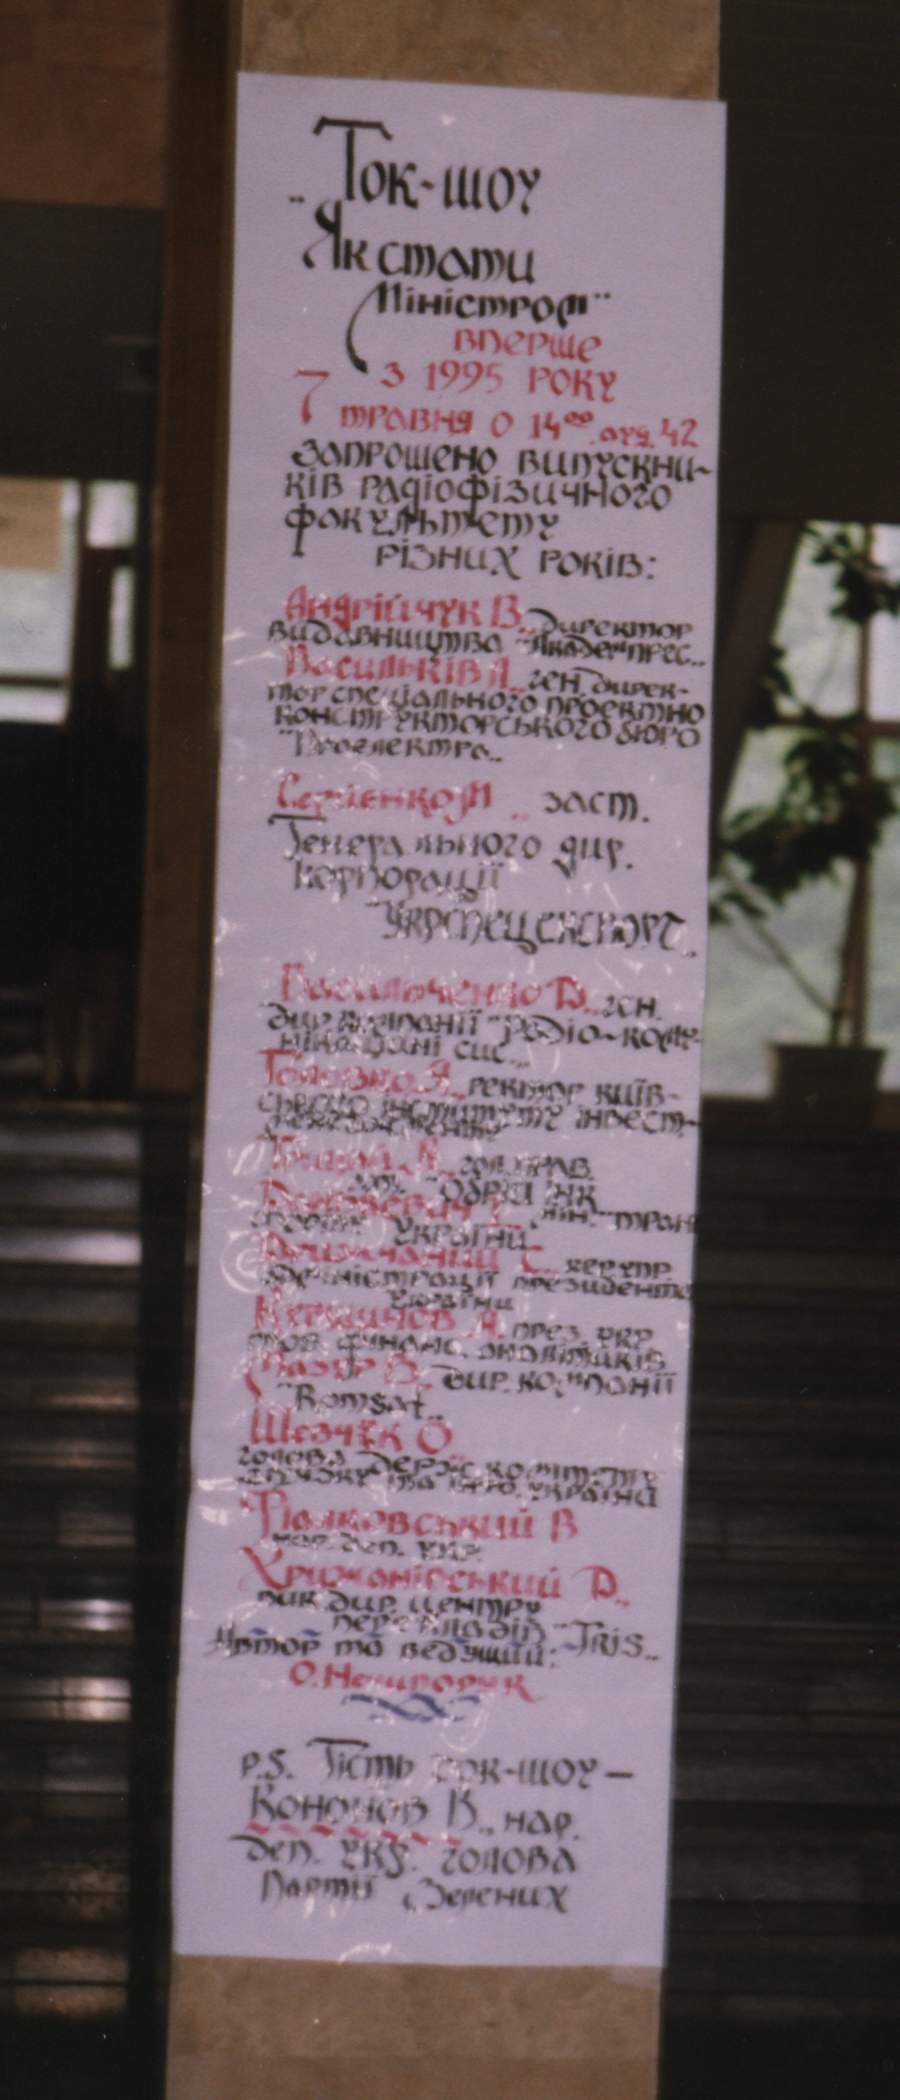 Ток-шоу
„Як стати
Міністром"
вперше
з 1995 року
7 травня о 14⁰⁰ ауд. 42
запрошено випускни-
ків радіофізичного
факультету
різних років:
Андрійчук В. „директор
видавництва "Академпрес„
Васильків Л. „ген. дирек-
тор спеціального проектно
конструкторського бюро
"Проелектро„
Сергієнко М „ заст.
Генерального дир.
корпорації
"Укрспецекспорт„
Васильченко В. „ген.
дир. компанії "Радіо-кому-
нікаційні сис.„
Головко Я. „ректор Київ-
ського інституту інвест-
гол. прав.
України
С. „керупр
адміністрації президента
України
през. укр
тов. фінанс. аналітиків
Мазур В. дир. компанії
"Romsat„
Шевчук О
голова держ. комітету
зв'язку та України
В
нар. деп. укр.
Д.„
вик. дир. центру
перекладів "Tris„
Автор та ведущий:
О. Нечипорук
P.S. Гість ток-шоу –
Кононов В., нар.
деп. укр. голова
Партії Зелених